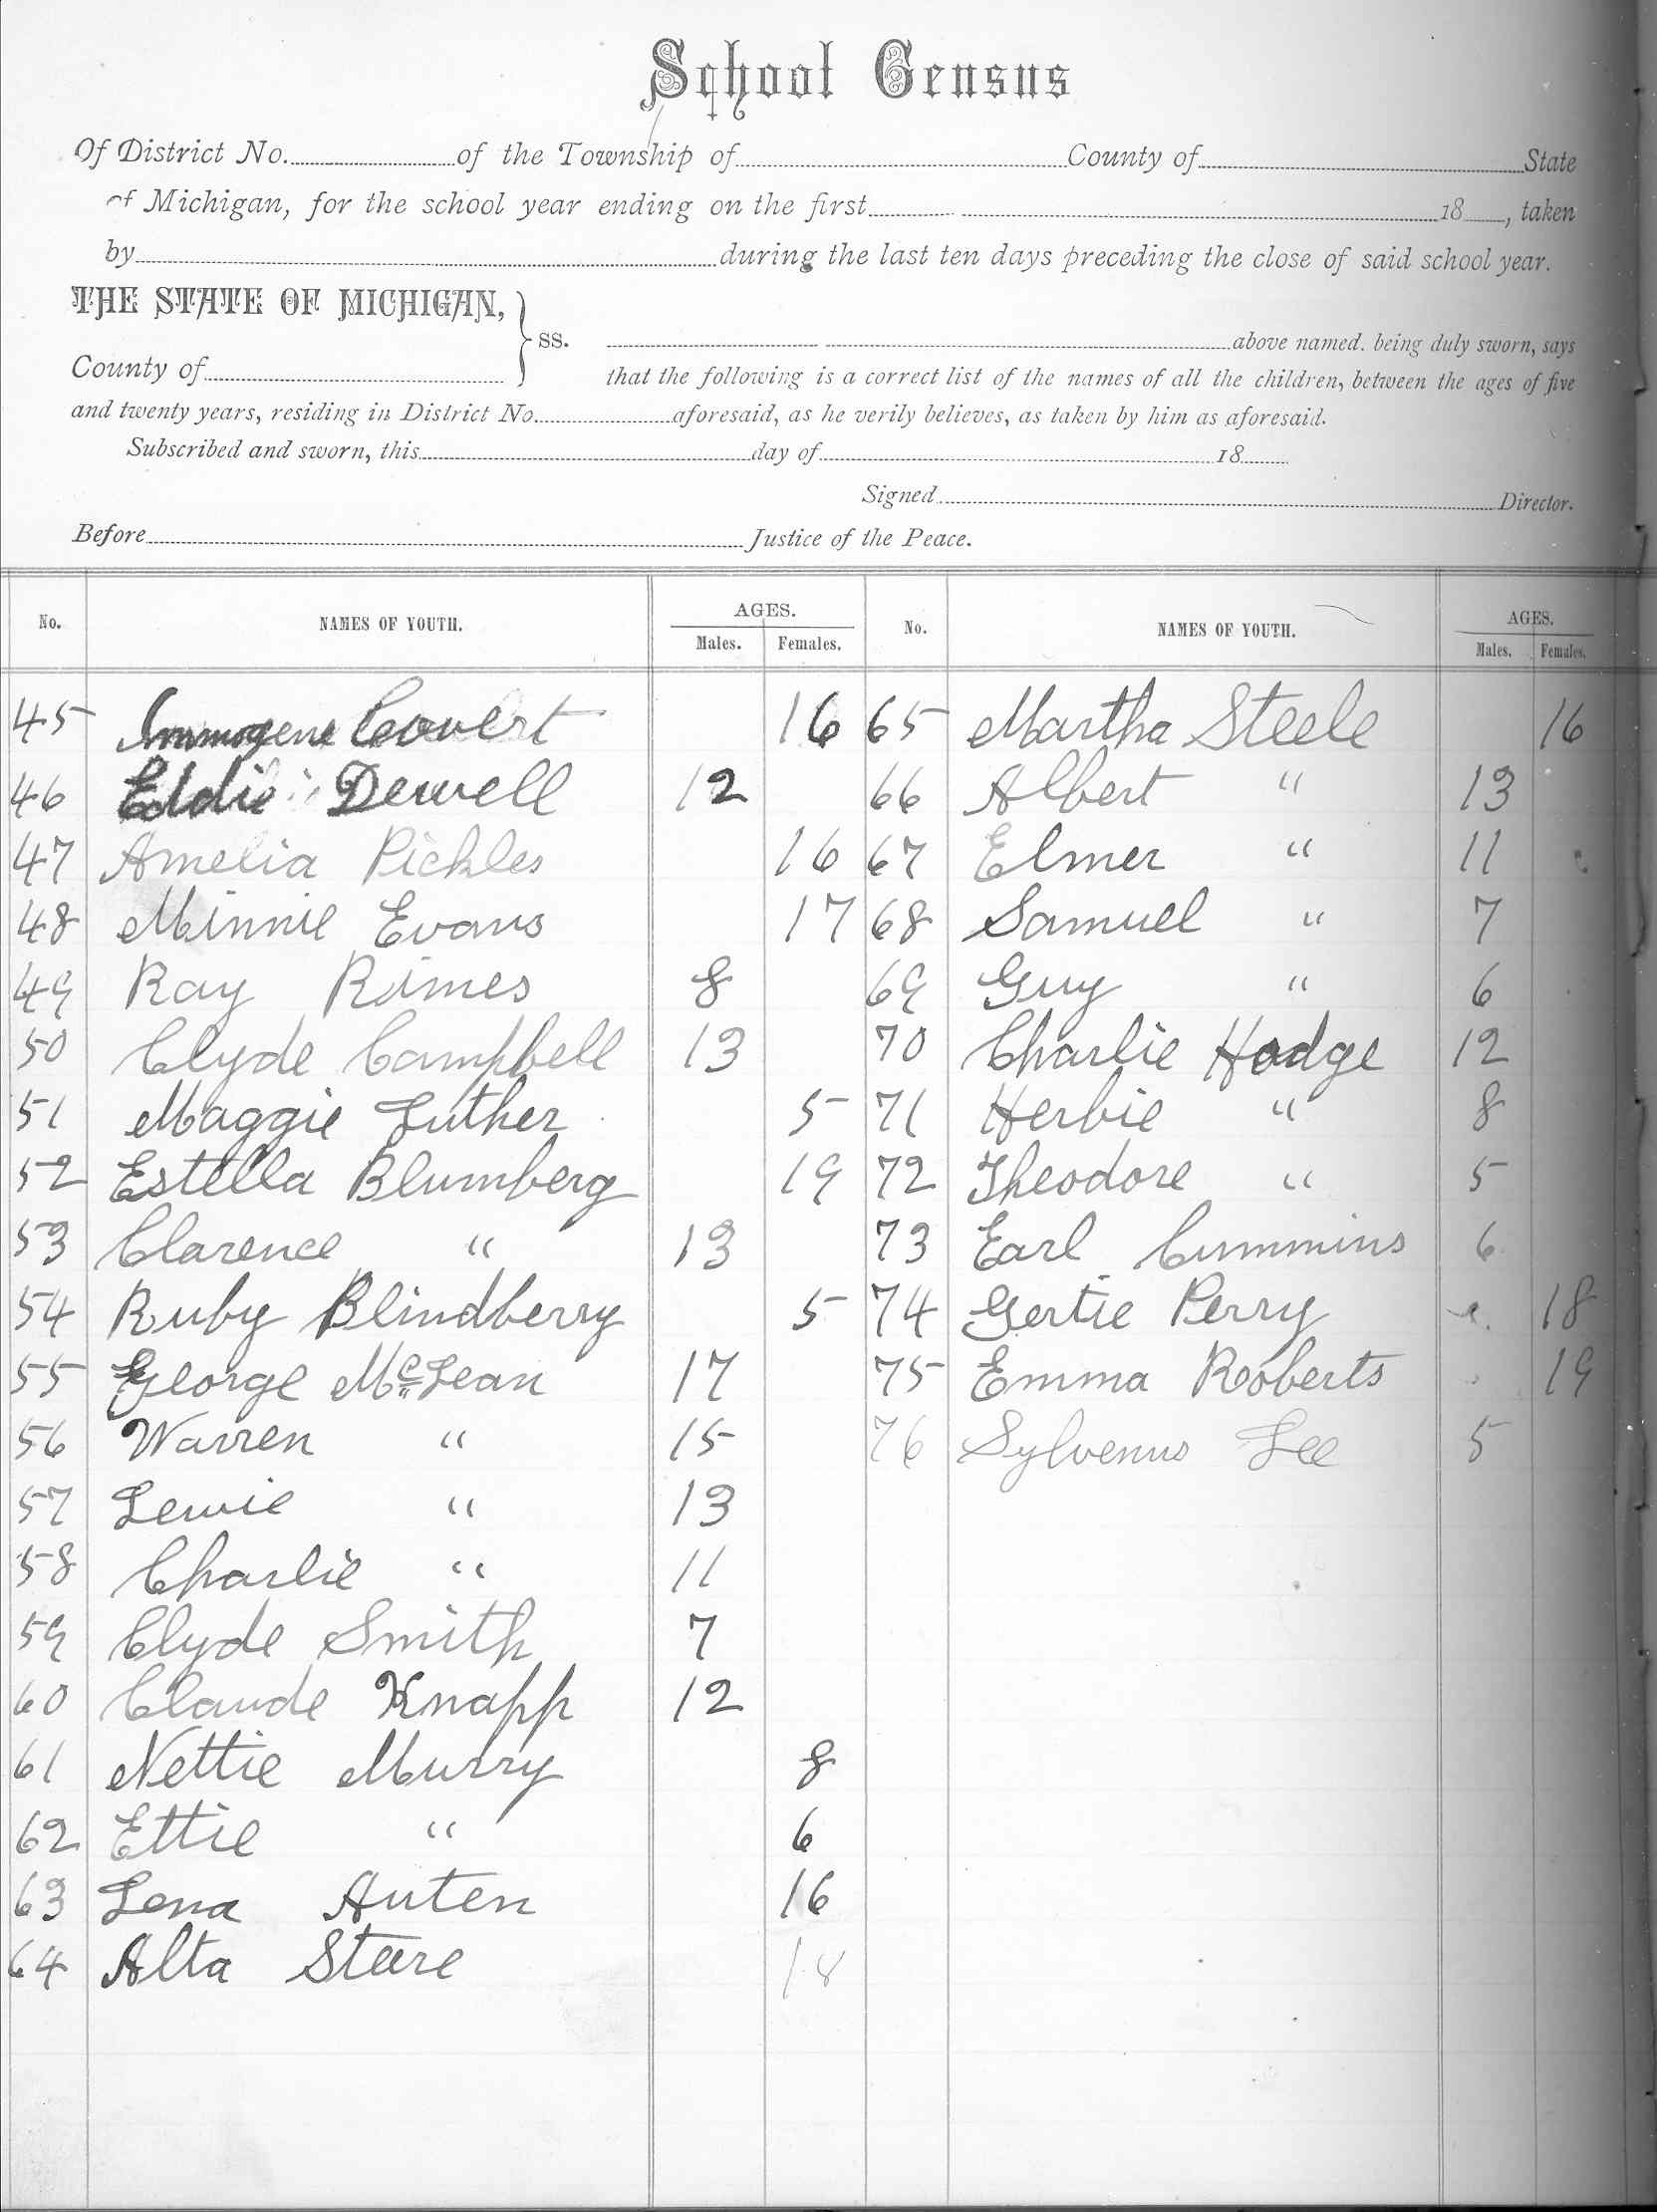 School Census
Of District No. of the Township of County of State
of Michigan, for the school year ending on the first 18 , taken
by during the last ten days preceding the close of said school year.
THE STATE OF MICHIGAN, } ss. above named. being duly sworn, says
County of that the following is a correct list of the names of all the children, between the ages of five
and twenty years, residing in District No. aforesaid, as he verily believes, as taken by him as aforesaid.
Subscribed and sworn, this day of 18
Signed Director.
Before Justice of the Peace.
No. NAMES OF YOUTH. AGES. Males. Females. No. NAMES OF YOUTH. AGES. Males. Females.
45 Immogene Covert 16 65 Martha Steele 16
46 Eddie Dewell 12 66 Albert " 13
47 Amelia Pickles 16 67 Elmer " 11
48 Minnie Evans 17 68 Samuel " 7
49 Ray Rimes 8 69 Guy " 6
50 Clyde Campbell 13 70 Charlie Hodge 12
51 Maggie Luther 5 71 Herbie " 8
52 Estella Blumberg 19 72 Theodore " 5
53 Clarence " 13 73 Earl Cummins 6
54 Ruby Blindberry 5 74 Gertie Perry 18
55 George McLean 17 75 Emma Roberts 19
56 Warren " 15 76 Sylvenus Lee 5
57 Lewie " 13
58 Charlie " 11
59 Clyde Smith 7
60 Claude Knapp 12
61 Nettie Murry 8
62 Ettie " 6
63 Lena Auten 16
64 Alta Steere 18